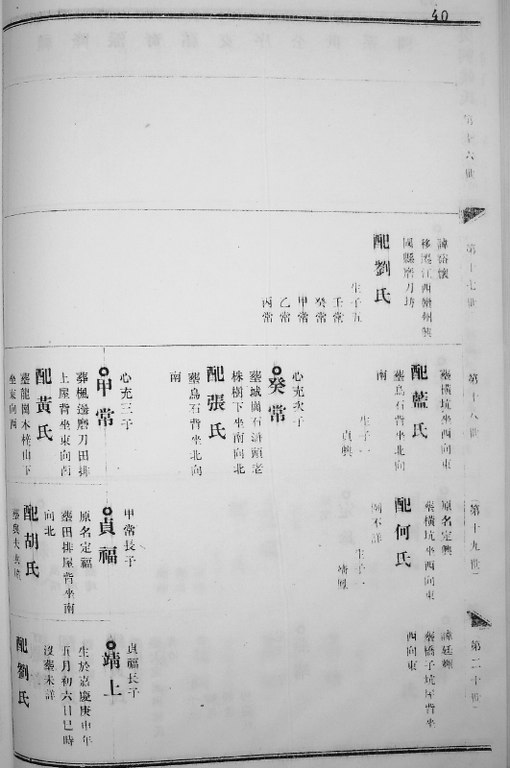 40
第十六世
第十七世
諱裕懷
移遷江西贛州興
國縣磨刀坊
配劉氏
生子五
壬常
癸常
甲常
乙常
丙常
第十八世
墓橫坑坐西向東
配藍氏
墓烏石背坐北向
南
生子一
貞興
心充次子
癸常
墓城岡石清頭老
株樹下坐南向北
配張氏
墓烏石背坐北向
南
心充三子
甲常
葬楓邊磨刀田排
上屋背坐東向西
配黃氏
墓龍岡木梓山下
坐東向西
第十九世
原名定興
墓橫坑坐西向東
配何氏
生子一
靖鳳
甲常長子
貞福
原名定福
墓田排屋背坐南
向北
配胡氏
第二十世
諱廷輝
西向東
貞福長子
靖上
生於嘉慶庚申年
五月初六日巳時
沒墓未詳
配劉氏